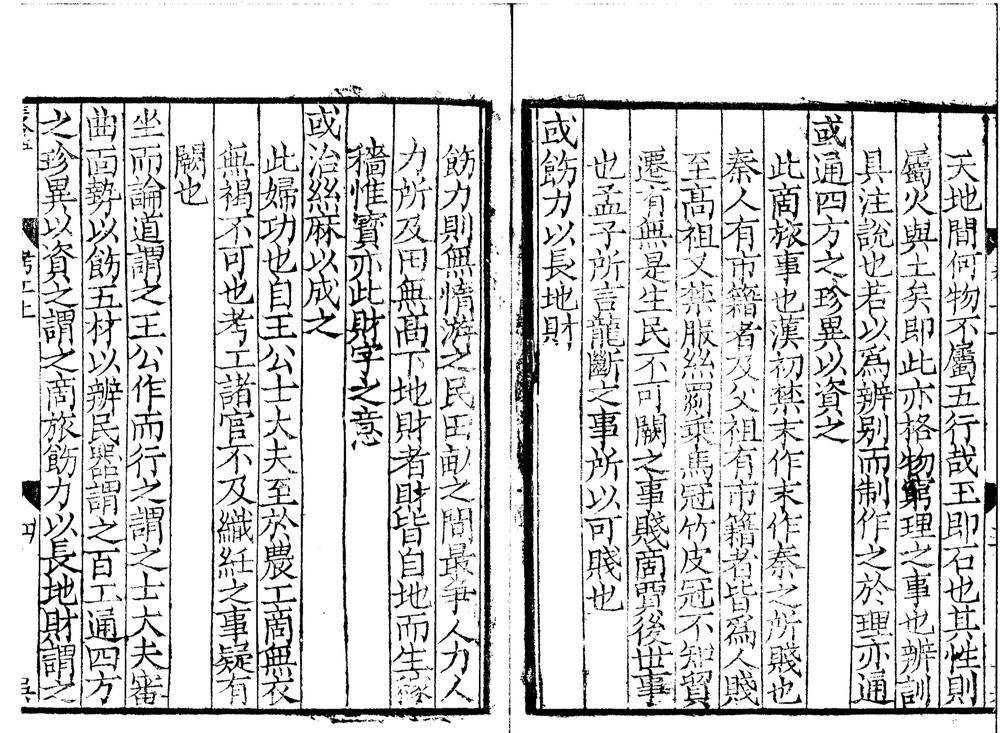 天地間何物不屬五行哉玉即石也其性則
屬火與土矣即此亦格物窮理之事也辨訓
具注說也若以爲辨别而制作之於理亦通
或通四方之珍異以資之
此啇旅事也漢初禁末作末作秦之所賤也
秦人有市籍者及父祖有市籍者皆爲人賤
至髙祖又禁服絲罽乗馬冠竹皮冠不知貿
遷有無是生民不可闕之事賤啇賈後世事
也孟子所言龍斷之事所以可賤也
或飭力以長地財
飭力則無惰游之民田畝之間最爭人力人
力所及田無髙下地財者財皆自地而生稼
穡惟寳亦此財字之意
或治絲麻以成之
此婦功也自王公士大夫至於農工啇無衣
無褐不可也考工諸官不及織紝之事疑有
闕也
坐而論道謂之王公作而行之謂之士大夫審
曲面勢以飭五材以辨民器謂之百工通四方
之珍異以資之謂之啇旅飭力以長地財謂之
考工上
四